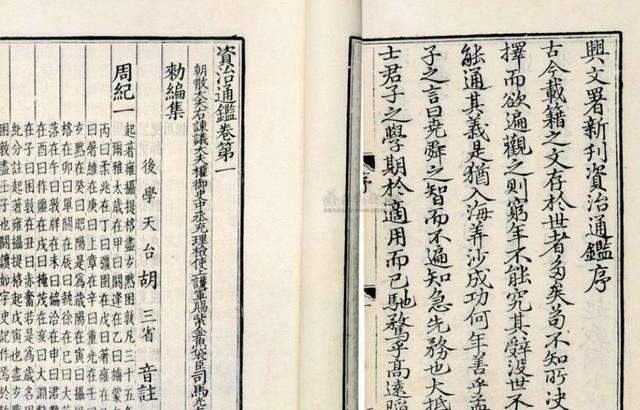 興文署新刊資治通鑑序
古今載籍之文存於世者多矣苟不知所決
擇而欲遍觀之則窮年不能究其辭沒世不
能通其義是猶入海筭沙成功何年善乎孟
子之言曰堯舜之智而不遍知急先務也大抵
士君子之學期於適用而已馳騖乎高遠陷
序
資治通鑑卷第一
朝散大夫右諫議大夫權御史中丞充理檢使上護軍賜紫金魚袋臣司馬光
勑編集
後學天台胡三省音註
周紀一
起著雍攝提格盡玄黓困敦凡三十五年
爾雅太歲在甲曰閼逢在乙曰旃蒙
丙曰柔兆在丁曰彊圉在戊曰著雍在
曰屠維在庚曰上章在辛曰重光在壬
玄黓在癸曰昭陽是為歲陽在寅曰攝
格在卯曰單閼在辰曰執徐在巳曰大
落在午曰敦牂在未曰協洽在申曰涒
在酉曰作噩在戌曰掩茂在亥曰大淵
在子曰困敦在丑曰赤奮若是為歲名
紀分註起著雍攝提格起戊寅也盡玄
困敦盡壬子也閼讀如字史記作焉於